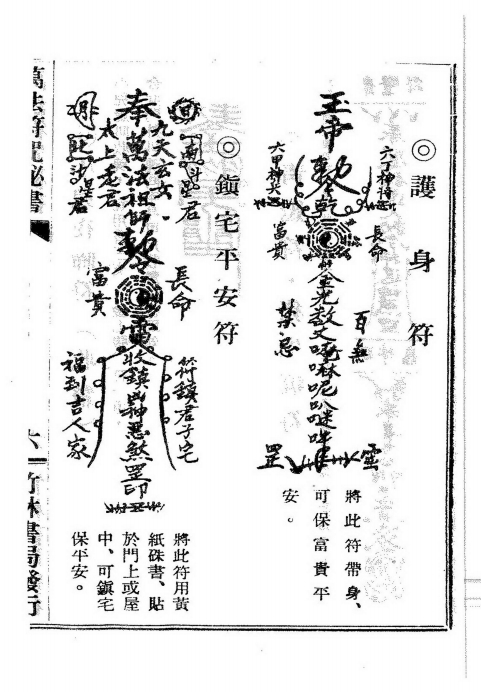 ◎護身符
玉帝敕令乾
六丁神將
六甲神兵
長命
富貴
百無
禁忌
罡
將此符帶身、
可保富貴平
安。
◎鎮宅平安符
奉萬法祖師敕令
九天玄女
太上老君
南斗星君
長命
富貴
雷收鎮凶神惡煞罡印
符鎮君子宅
福到吉人家
將此符用黃
紙硃書、貼
於門上或屋
中、可鎮宅
保平安。
萬法符咒秘書
六一
竹林書局發行